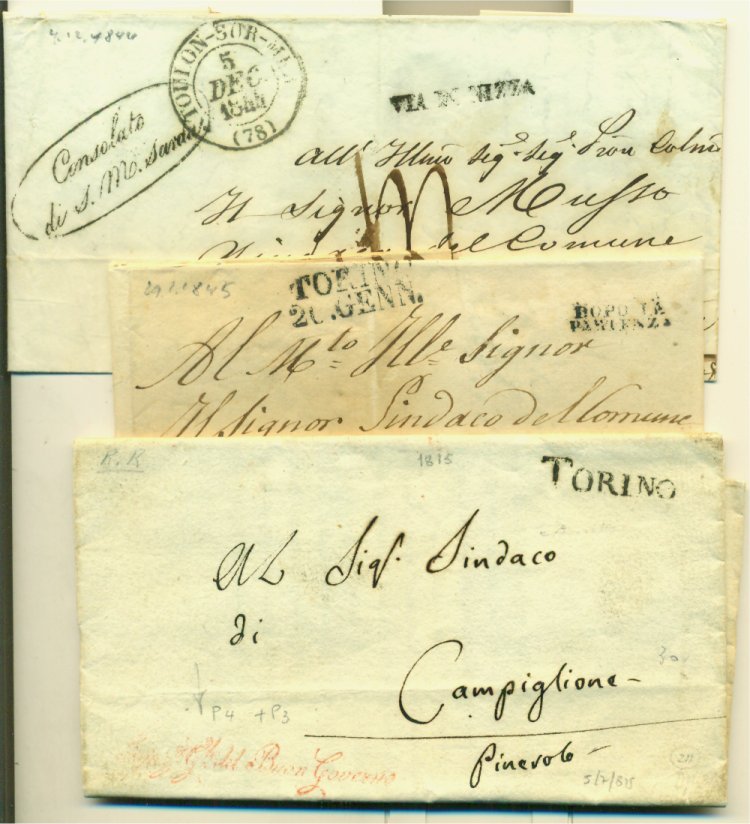 7.12.1844
TOULON-SUR-MER
5
DEC.
1844
(78)
VIA DI NIZZA
Consolato
di S. M. Sarda
All' Illmo Sigr. Sigr. Pron Colmo
Il Signor Musso
del Comune
1845
TORINO
20.GENN.
DOPO LA
PARTENZA
Al Mto Ille Signor
Il Signor Sindaco del Comune
R.R
1815
TORINO
Al Sigr. Sindaco
di
Campiglione
30
P4 +P3
Pinerolo
Gle del Buon Governo
5/7/815
211